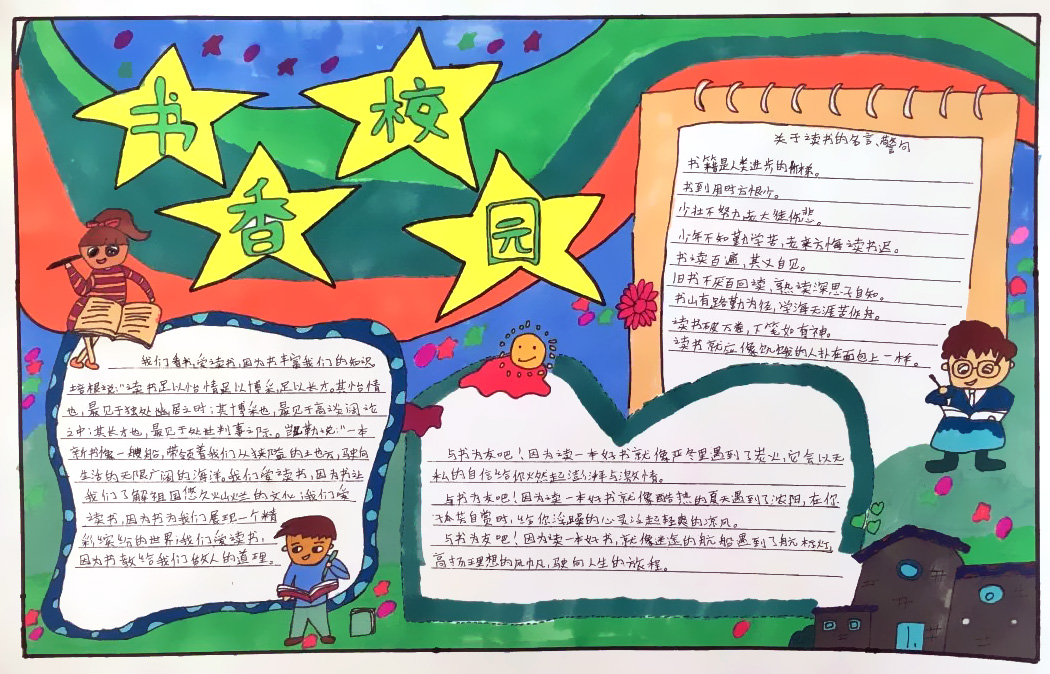 书 校
香 园
关于读书的名言、警句
书籍是人类进步的阶梯。
书到用时方恨少。
少壮不努力老大徒伤悲
少年不知勤学苦，老来方悔读书迟。
书读百遍，其义自见。
旧书不厌百回读，熟读深思子自知。
书山有路勤为径，学海无涯苦作舟。
读书破万卷，下笔如有神。
读书就应像饥饿的人扑在面包上一样。
我们看书，爱读书，因为书丰富我们的知识
培根说：“读书足以怡情足以博采，足以长才。其怡情
也，最见于独处幽居之时；其博采也，最见于高谈阔论
之中；其长才也，最见于处世判事之际。凯勒说：“一本
新书像一艘船，带领着我们从狭隘的土地方，驶向
生活的无限广阔的海洋。我们爱读书，因为书让
我们了解祖国悠久灿烂的文化；我们爱
读书，因为书为我们展现一个精
彩缤纷的世界；我们爱读书，
因为书教给我们做人的道理。
与书为友吧！因为读一本好书就像严冬里遇到了炭火，它会以无
私的自信给你燃起澎湃与激情。
与书为友吧！因为读一本好书就像酷热的夏天遇到了浓阳，在你
孤芳自赏时，给你浮躁的心灵泛起轻爽的凉风。
与书为友吧！因为读一本好书，就像迷途的航船遇到了航标灯，
高扬理想的风帆，驶向人生的旅程。